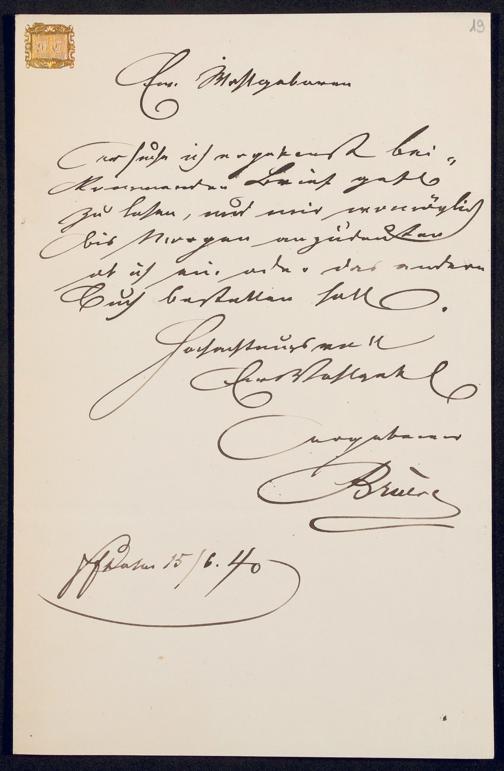 19
Ew. Wohlgeboren
ersuche ich ergebenst bei-
kommenden Brief gefl.
zu lesen, und mir womöglich
bis Morgen anzudeuten
ob ich ein oder das andere
Buch bestellen soll.
Hochachtungsvoll
Euer Wohlgeb
ergebener
Bruère
15/6. 40